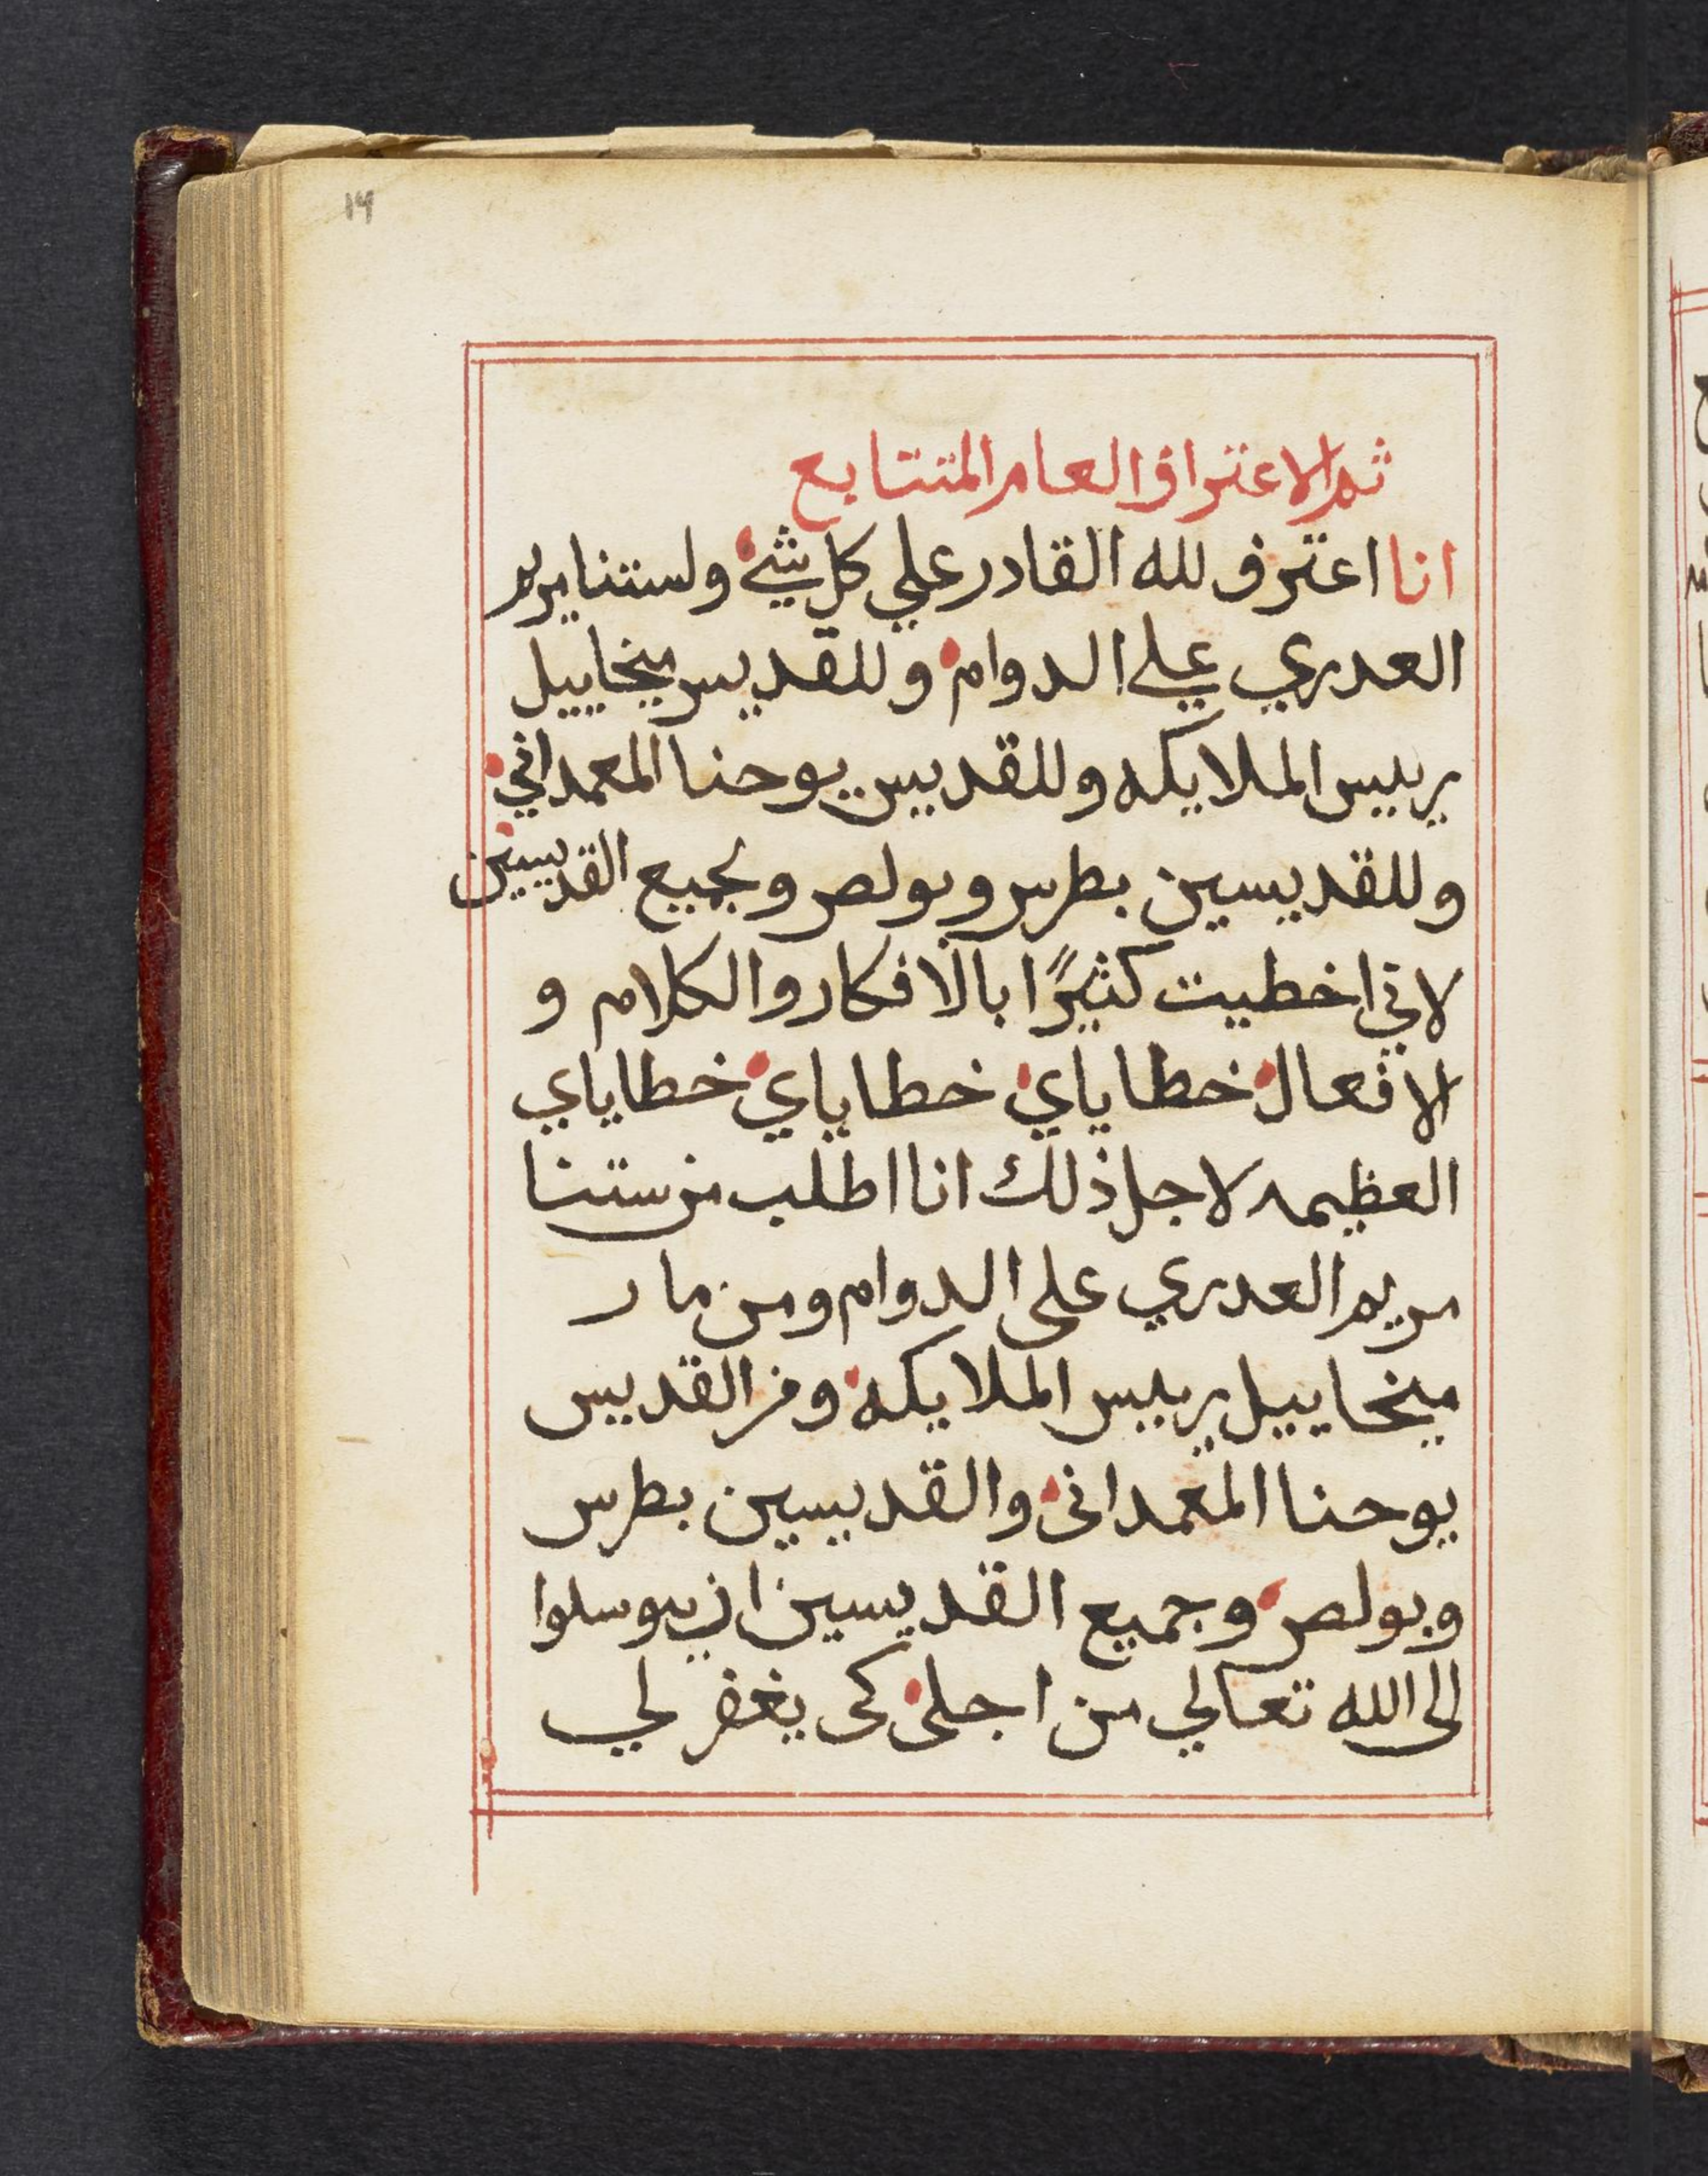 ١٩
ثم الاعتراف العام المتتابع
انا اعترف لله القادر علي كل شيء ولستنا مريم
العدري علي الدوام وللقديس ميخاييل
رييس الملايكه وللقديس يوحنا المعمداني
وللقديسين بطرس وبولص ولجميع القديسين
لاني اخطيت كثيرًا بالافكار والكلام و
الافعال خطاياي خطاياي خطاياي
العظيمه لاجل ذلك انا اطلب من ستنا
مريم العدري على الدوام ومن مار
ميخاييل رييس الملايكه ومن القديس
يوحنا المعمدانى والقديسين بطرس
وبولص وجميع القديسين ان يتوسلوا
الى الله تعالي من اجلى كى يغفر لي